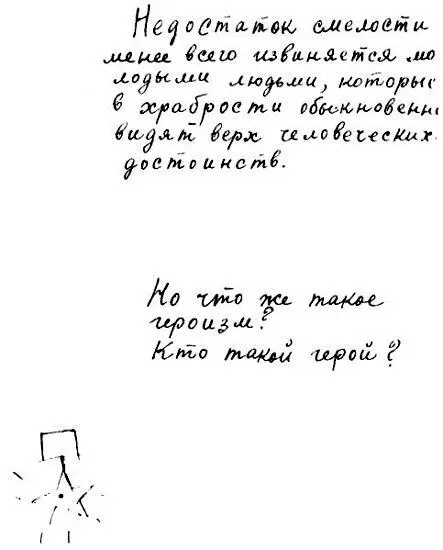 Недостаток смелости
менее всего извиняется мо
лодыми людьми, которые
в храбрости обыкновенн
видят верх человеческих
достоинств.
Но что же такое
героизм?
Кто такой герой?